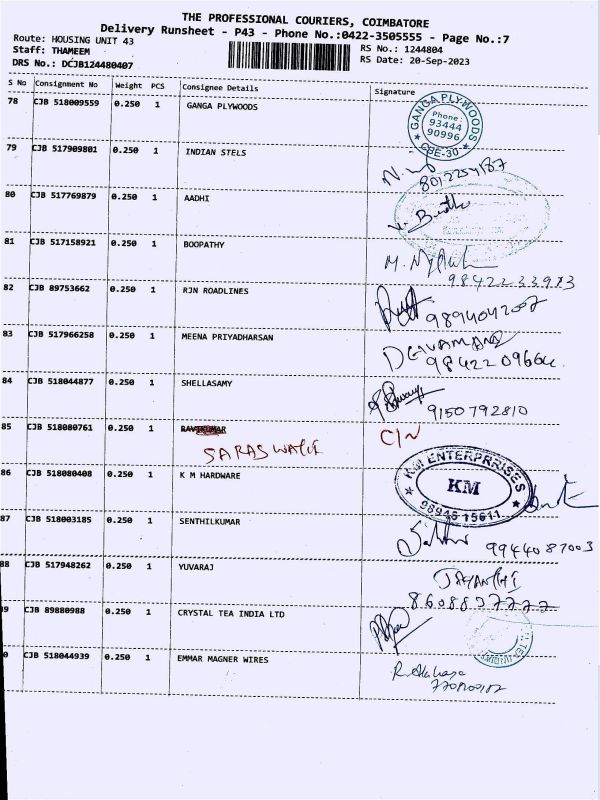 THE PROFESSIONAL COURIERS, COIMBATORE
Delivery Runsheet - P43 - Phone No.:0422-3505555 - Page No.:7
Route: HOUSING UNIT 43
RS No.: 1244804
Staff: THAMEEM
RS Date: 20-Sep-2023
DRS No.: DCJB124480407
S No Consignment No Weight PCS Consignee Details Signature
78 CJB 518009559 0.250 1 GANGA PLYWOODS
GANGA PLYWOODS
Phone:
93444
90996
CBE-30
79 CJB 517909801 0.250 1 INDIAN STELS
8012254187
80 CJB 517769879 0.250 1 AADHI
81 CJB 517158921 0.250 1 BOOPATHY
9842233983
82 CJB 89753662 0.250 1 RJN ROADLINES
9894042007
83 CJB 517966258 0.250 1 MEENA PRIYADHARSAN
84 CJB 518044877 0.250 1 SHELLASAMY
9150792810
85 CJB 518080761 0.250 1 RAVIKUMAR
C/N
86 CJB 518080408 0.250 1 K M HARDWARE
KM ENTERPRRISES
KM
98945 15611
87 CJB 518003185 0.250 1 SENTHILKUMAR
9944087003
88 CJB 517948262 0.250 1 YUVARAJ
JAYANTHI
CJB 89880988 0.250 1 CRYSTAL TEA INDIA LTD
CJB 518044939 0.250 1 EMMAR MAGNER WIRES